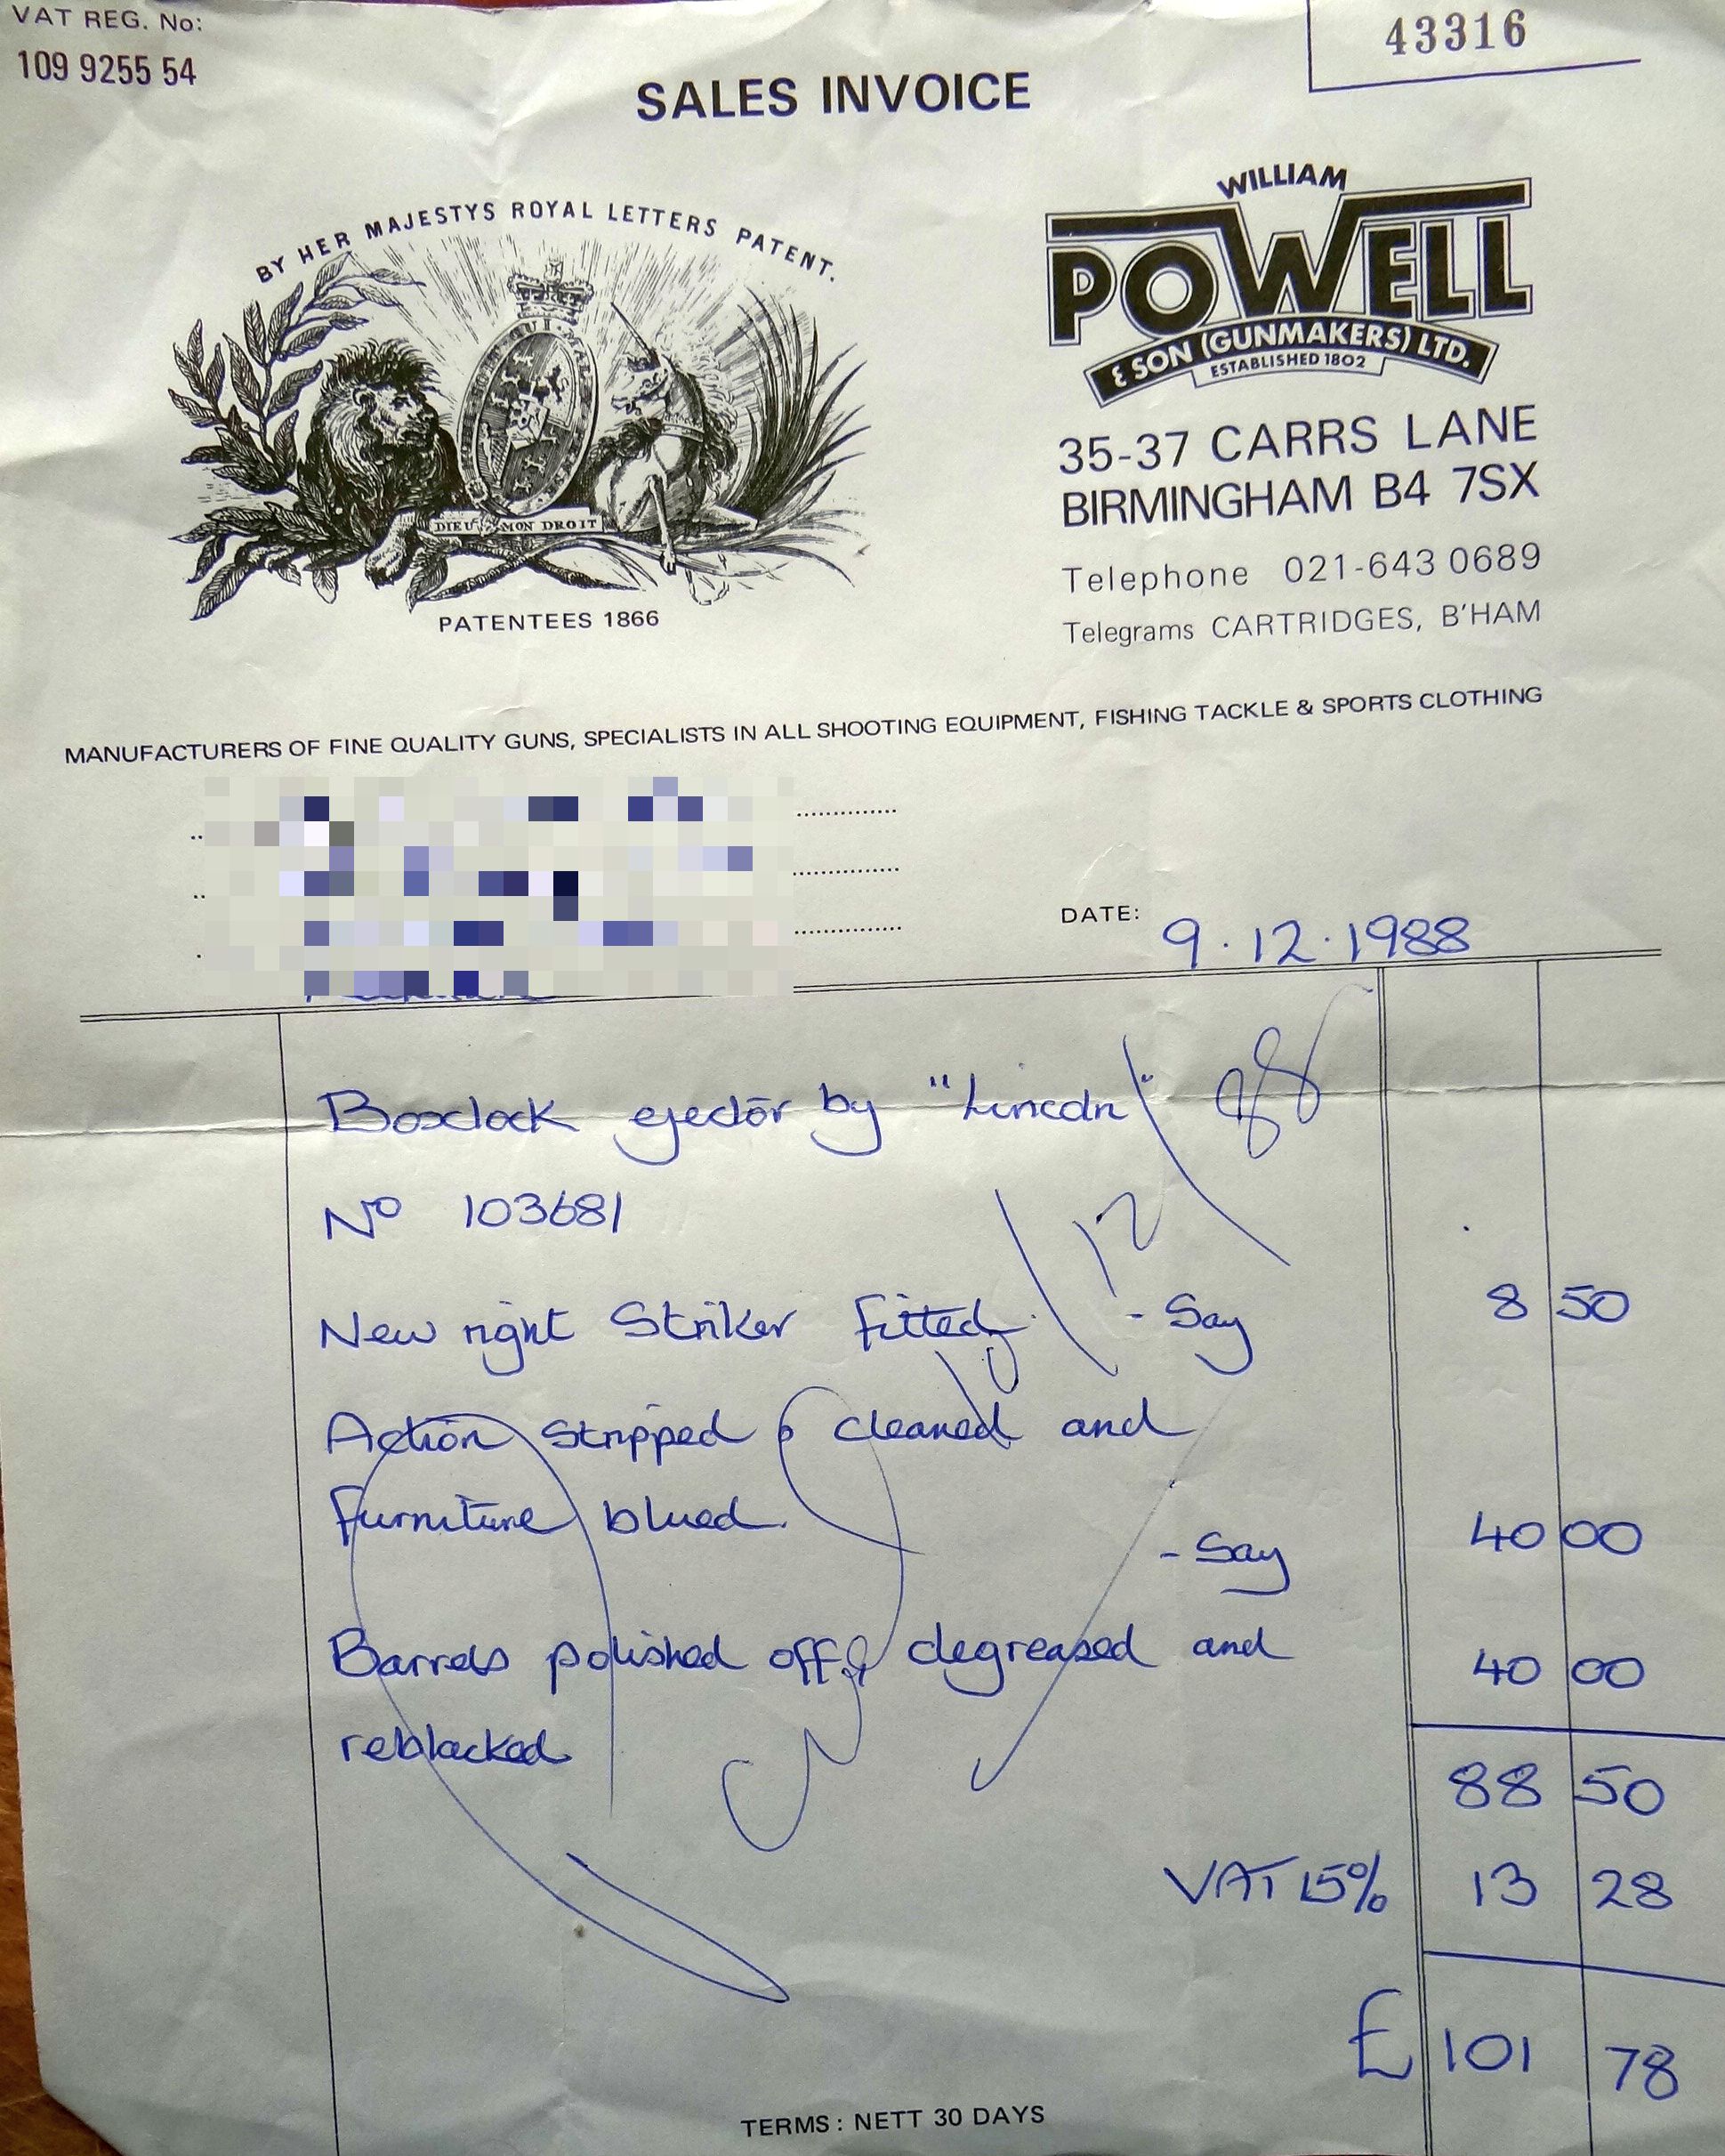 VAT REG. No:
109 9255 54
43316
SALES INVOICE
BY HER MAJESTYS ROYAL LETTERS PATENT.
DIEU MON DROIT
PATENTEES 1866
WILLIAM
POWELL
& SON (GUNMAKERS) LTD.
ESTABLISHED 1802
35-37 CARRS LANE
BIRMINGHAM B4 7SX
Telephone 021-643 0689
Telegrams CARTRIDGES, B'HAM
MANUFACTURERS OF FINE QUALITY GUNS, SPECIALISTS IN ALL SHOOTING EQUIPMENT, FISHING TACKLE & SPORTS CLOTHING
DATE: 9.12.1988
Boxlock ejector by "Lincoln"
Nº 103681
New right Striker fitted. - Say 8 50
Action stripped & cleaned and
furniture blued. - Say 40 00
Barrels polished off, degreased and 40 00
reblacked
88 50
VAT 15% 13 28
£ 101 78
TERMS: NETT 30 DAYS